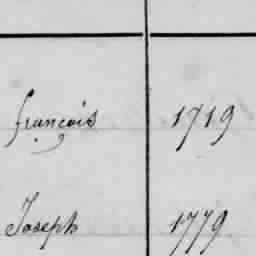 françois 1719
Joseph 1779